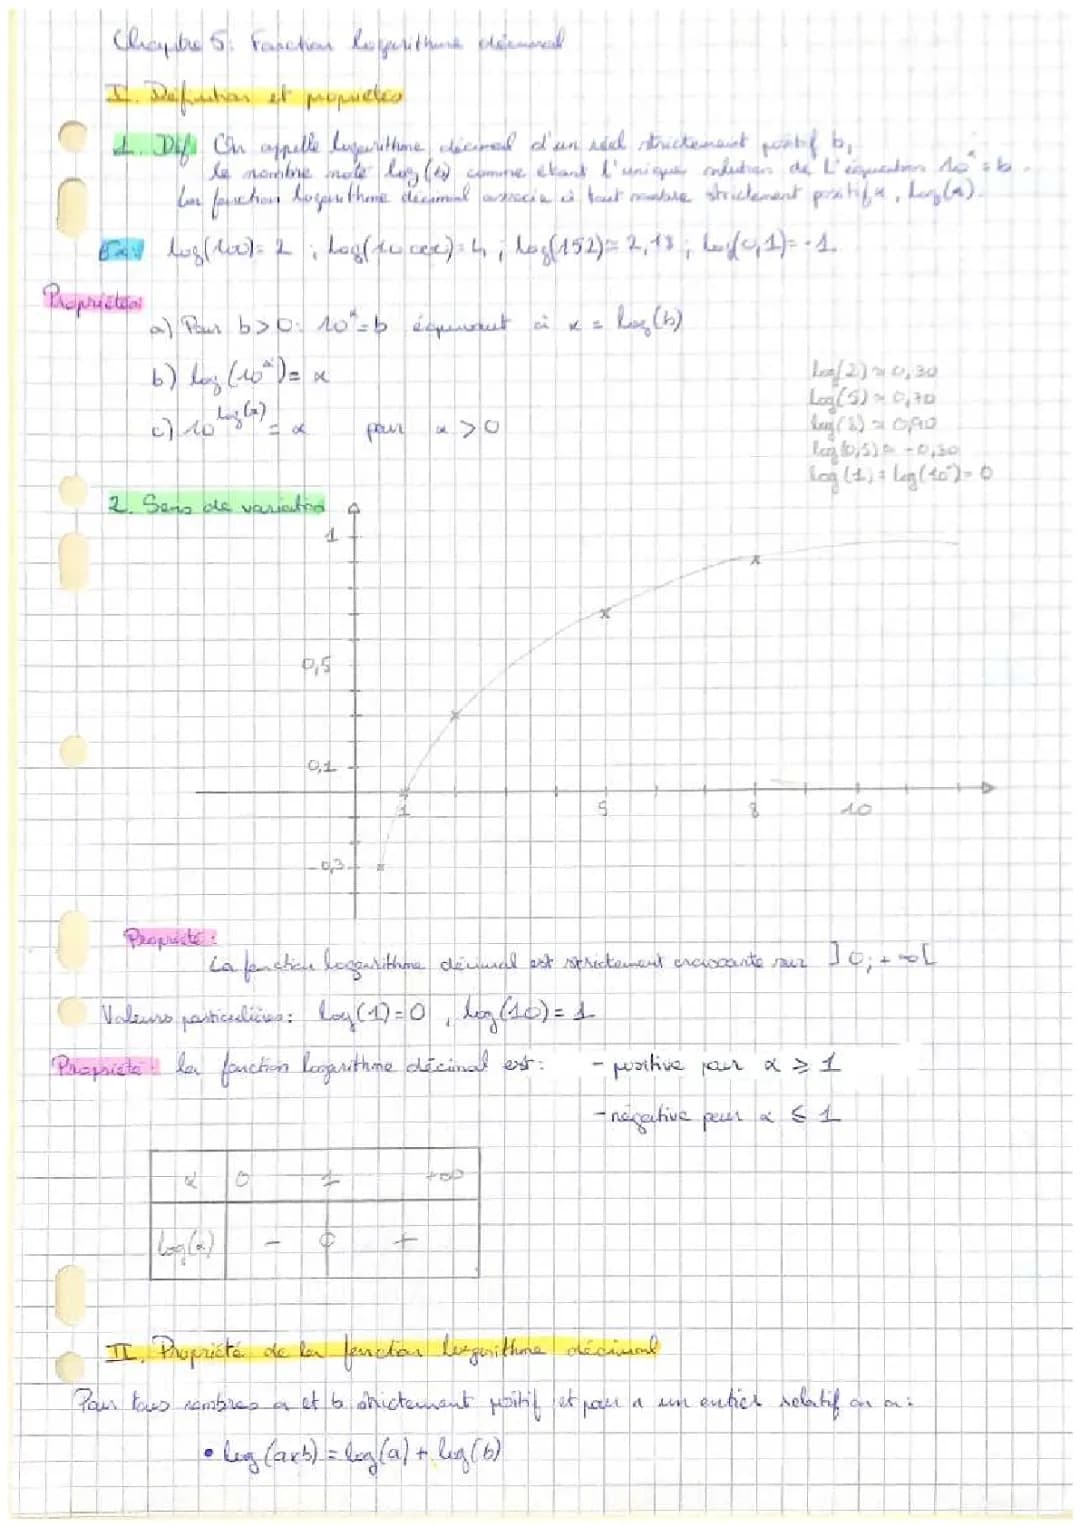 Chapitre 5: Fonction logarithme décimal
I. Définition et propriétés
1. Déf On appelle logarithme décimal d'un réel strictement positif b,
le nombre noté log(b) comme étant l'unique solution de l'équation 10ˣ = b.
La fonction logarithme décimal associe à tout nombre strictement positif x, log(x).
Ex: log(100) = 2 ; log(10 000) = 4 ; log(152) ≈ 2,18 ; log(0,1) = -1.
Propriétés:
a) Pour b > 0: 10ˣ = b équivaut à x = log(b)
b) log(10ˣ) = x
c) 10^log(x) = x pour x > 0
log(2) ≈ 0,30
log(5) ≈ 0,70
log(8) ≈ 0,90
log(0,5) ≈ -0,30
log(1) = log(10⁰) = 0
2. Sens de variation
1
0,5
0,1
1 5 8 10
-0,3
Propriété:
La fonction logarithme décimal est strictement croissante sur ]0;+∞[
Valeurs particulières: log(1) = 0 , log(10) = 1
Propriété: la fonction logarithme décimal est: - positive pour x ≥ 1
- négative pour x ≤ 1
x 0 1 +∞
log(x) - 0 +
II. Propriété de la fonction logarithme décimal
Pour tous nombres a et b strictement positif et pour n un entier relatif on a:
• log(a×b) = log(a) + log(b)